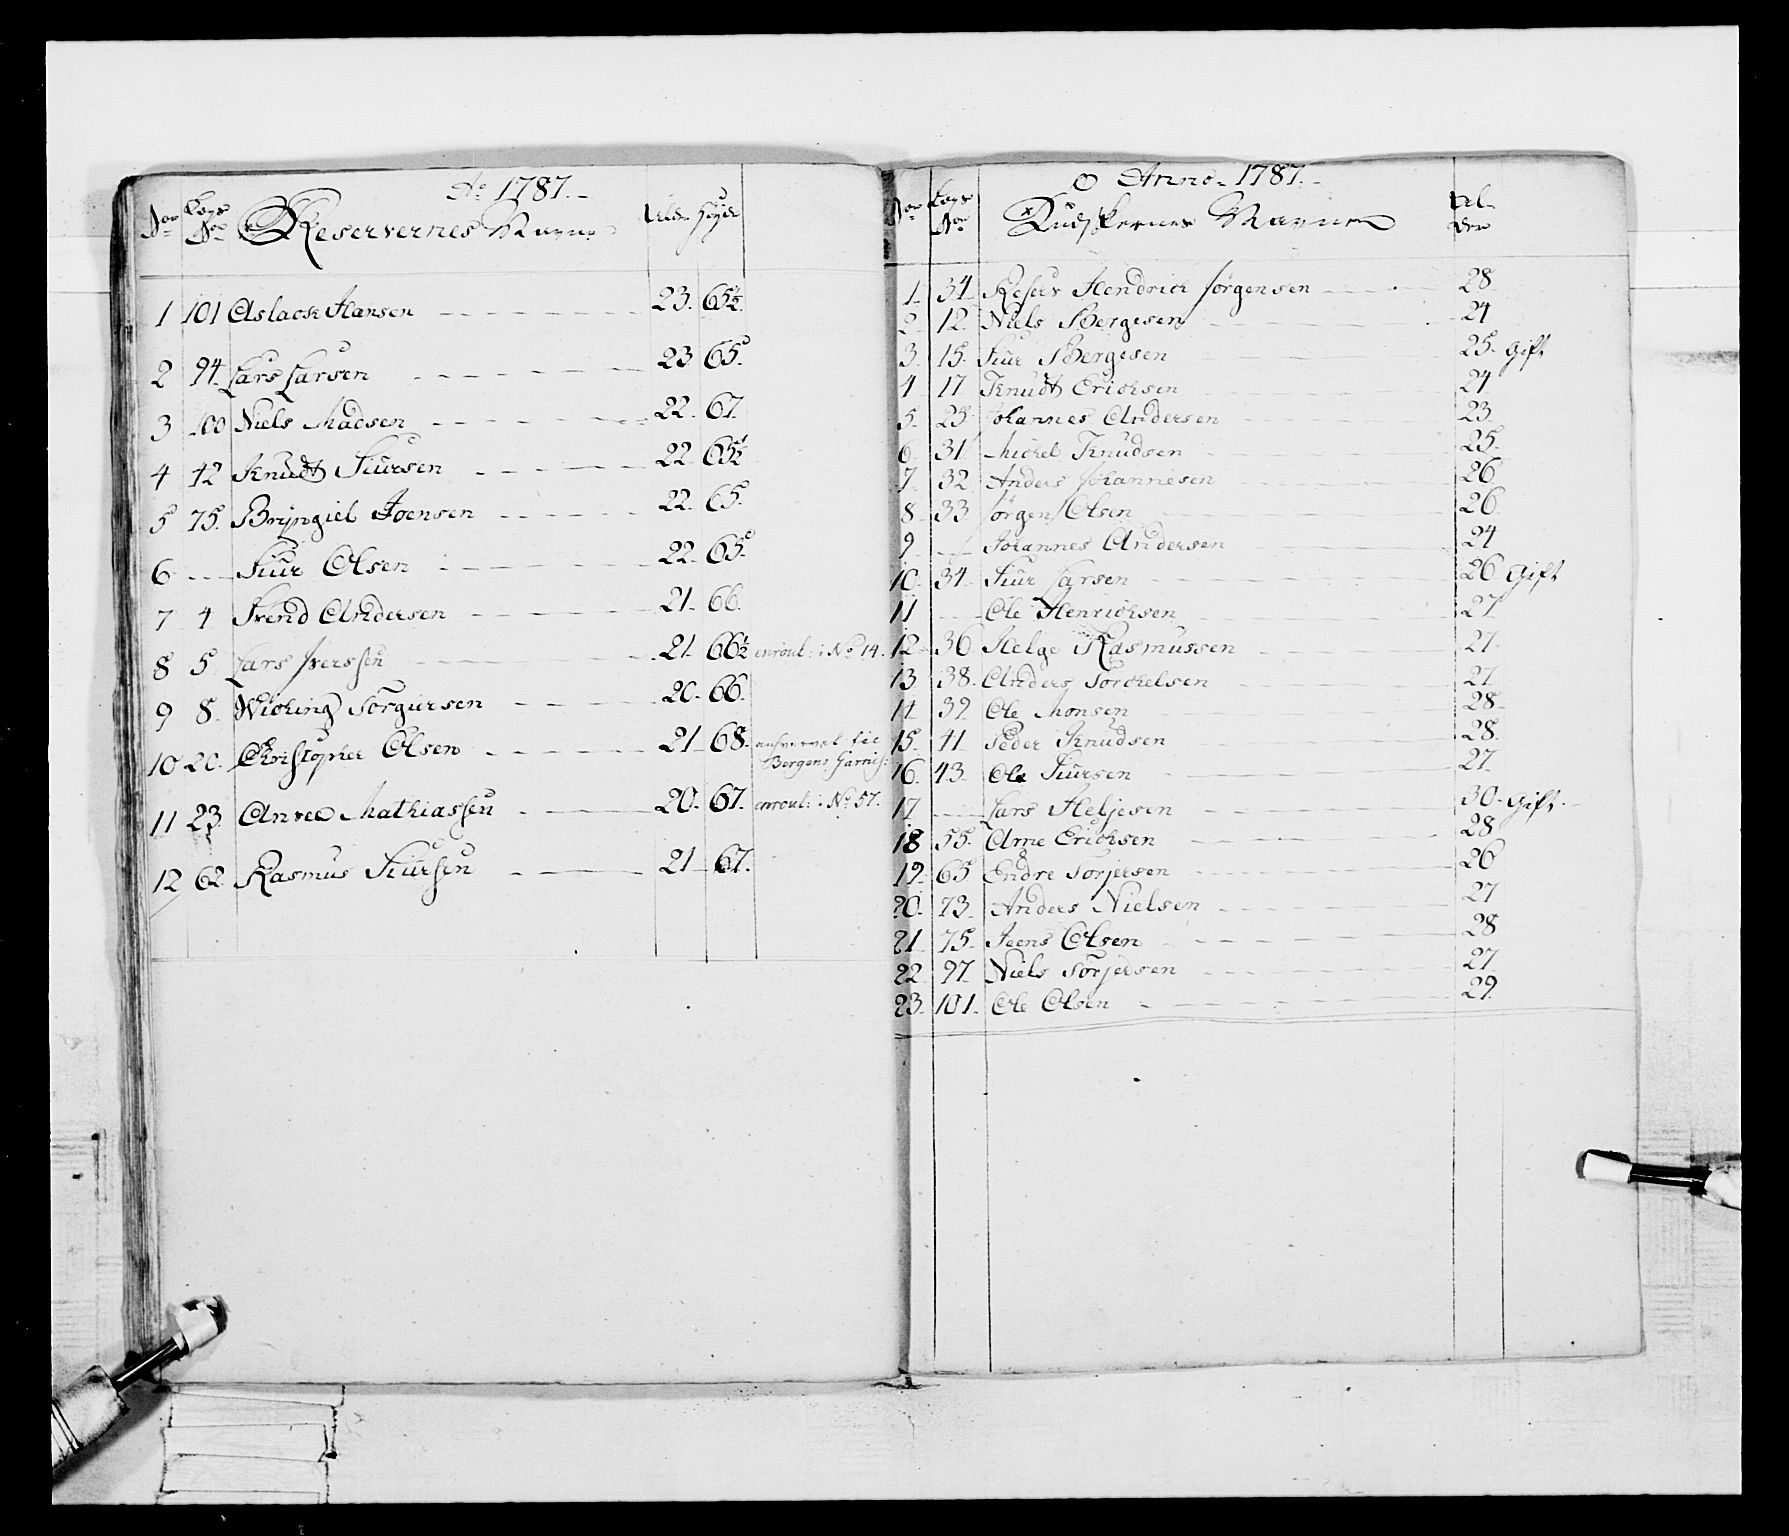 Ao 1787.
Nor Lægs Nor Reservernes Navne Alder Høyde
1 101 Aslach Hansen 23. 65½
2 94. Lars Larsen 23 65.
3 100 Niels Madsen 22. 67.
4 42 Knudt Siursen 22 65½
5 75. Brÿngiel Joensen 22. 65.
6 Siur Olsen 22. 65.
7 4 Svend Andersen 21. 66.
8 5. Lars Iversen 21. 66½ enroul: i No 14.
9 8. Wiching Torgiersen 20. 66.
10 20. Christopher Olsen 21 68.
Bergens Garnis:
11 23. Mathiassen 20. 67. enroul: i No 57.
12 62 Rasmus Siursen 21 67.
Anno 1787.
Nor Lægs Nor Kudskernes Navne Al-
der
1. 34. Hendrich Jørgensen 28
2. 12. Niels Børgesen 24
3. 15. Siur Børgesen 25. Gift
4 17 Knudt Erichsen 24
5. 25 Johannes Andersen 23.
6. 31 Michel Knudsen 25.
7. 32. Anders Johannesen 26
8. 33. Jørgen Olsen 26.
9 Johannes Andersen 24
10. 34. Siur Larsen 26 Gift
11 Ole Henrichsen 27
12 36. Helge Rasmussen 27.
13 38. Anders Torchelsen 27.
14 39. Ole Monsen 28.
15. 41 Peder Knudsen 28.
16. 43. Ole Siursen 27.
17 Lars Heljesen 30. Gift.
18 55. Arne Erichsen 28
19. 65 Endre Torjersen 26
20. 73. Anders Nielsen 27
21 75. Jens Olsen 28
22. 97. Niels Torjersen 27
23. 101. Ole Olsen 29.